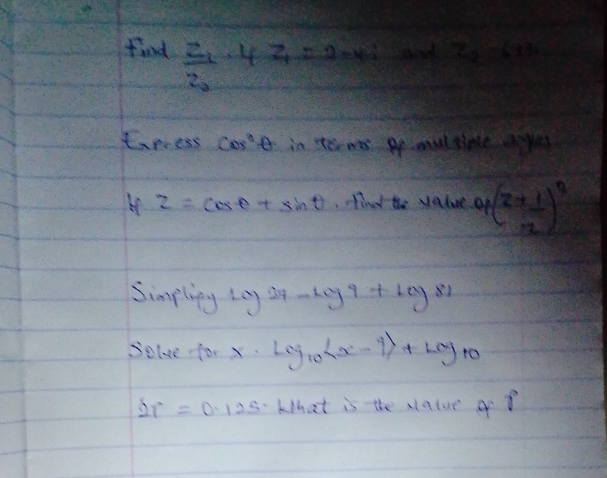 Find Z₁/Z₂ . If Z₁ = and Z₂
Express Cos θ in terms of multiple
If Z = cosθ + sinθ. Find the value of (Z + 1/Z)
Simplify Log 27 - Log 9 + Log 81
Solve for x . Log₁₀(x - 9) + Log₁₀
2r = 0.125. What is the value of r